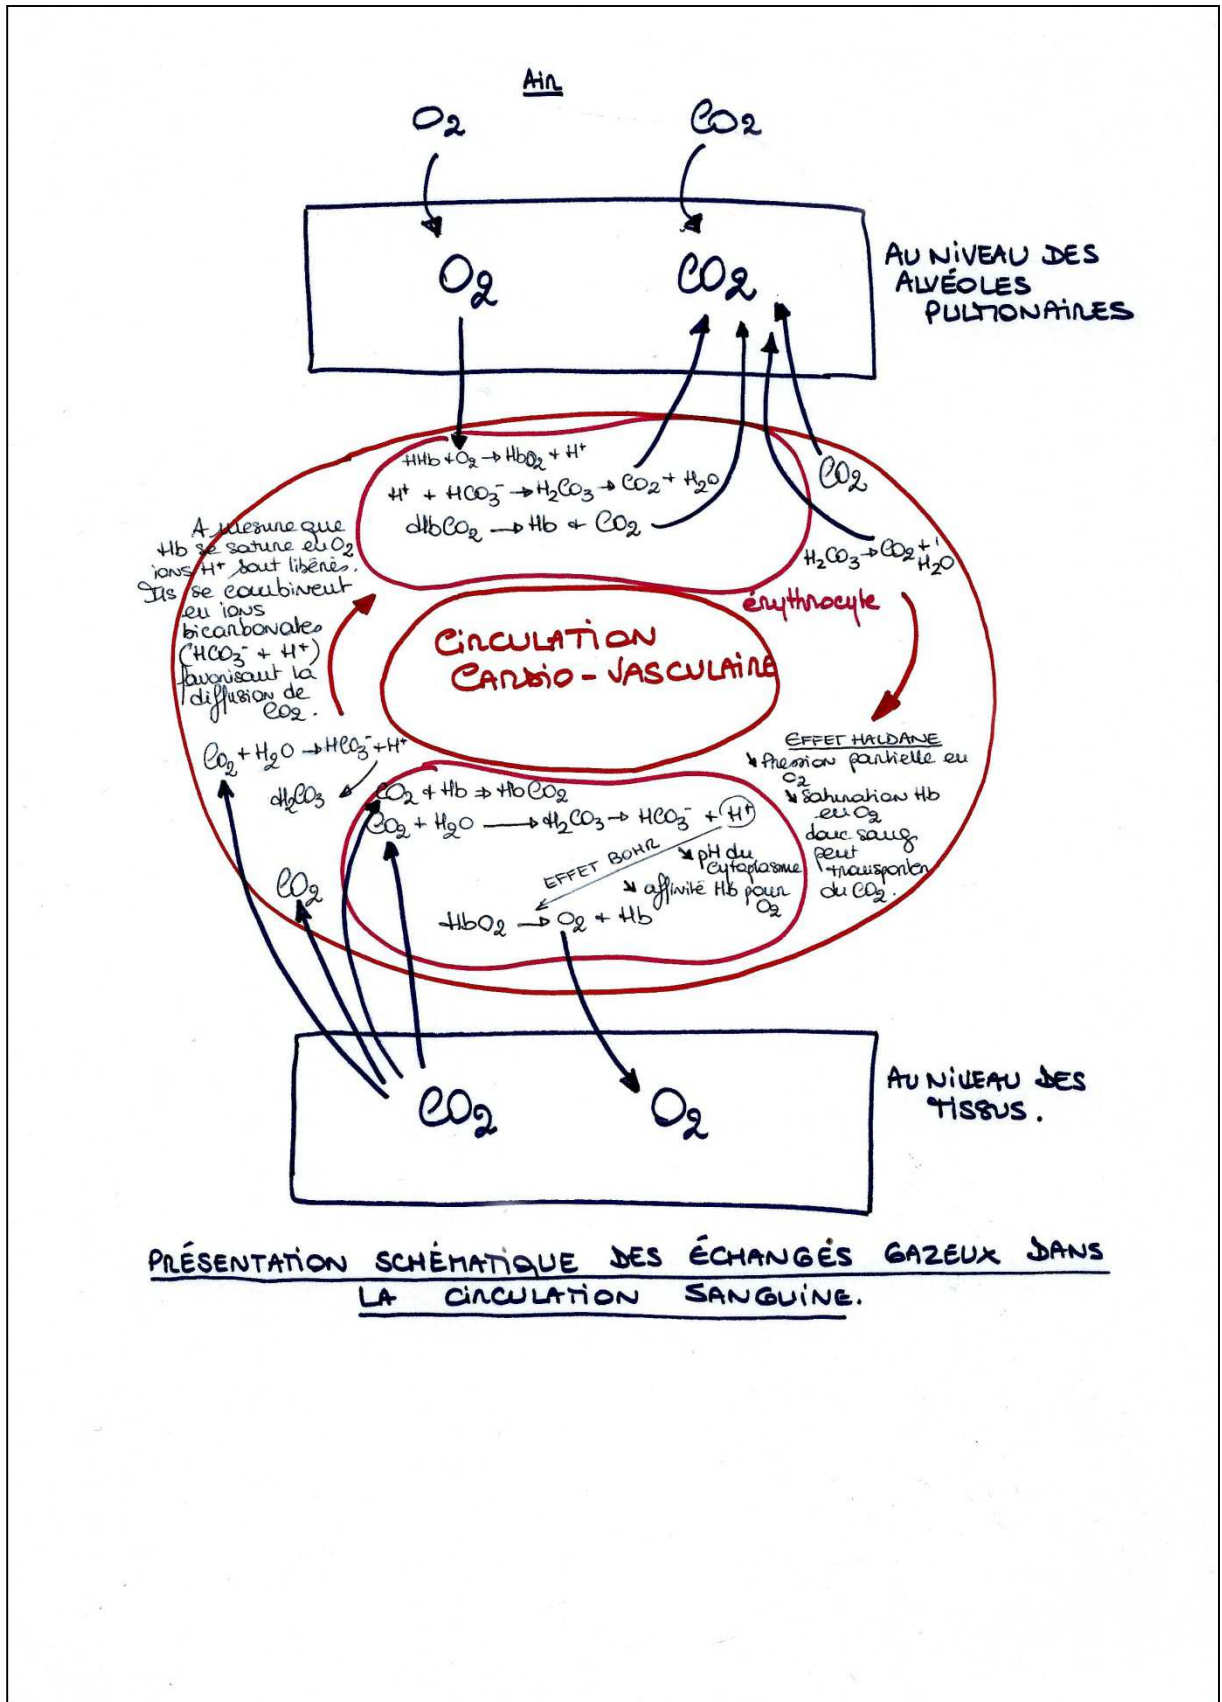 Air
O2 CO2
O2 CO2
AU NIVEAU DES
ALVÉOLES
PULMONAIRES
HHb + O2 → HbO2 + H+
H+ + HCO3- → H2CO3 → CO2 + H2O
HbCO2 → Hb + CO2
CO2
H2CO3 → CO2 +
H2O
érythrocyte
A mesure que
Hb se sature en O2
ions H+ sont libérés.
Ils se combinent
en ions
bicarbonates
(HCO3- + H+)
favorisant la
diffusion de
CO2.
CIRCULATION
CARDIO-VASCULAIRE
EFFET HALDANE
↘ Pression partielle en
O2
↘ Saturation Hb
en O2
donc sang
peut
transporter
du CO2.
CO2 + H2O → HCO3- + H+
H2CO3
CO2
CO2 + Hb → HbCO2
CO2 + H2O → H2CO3 → HCO3- + H+
EFFET BOHR
↘ pH du
cytoplasme
↘ affinité Hb pour
O2
HbO2 → O2 + Hb
CO2 O2
AU NIVEAU DES
TISSUS.
PRÉSENTATION SCHÉMATIQUE DES ÉCHANGÉS GAZEUX DANS
LA CIRCULATION SANGUINE.